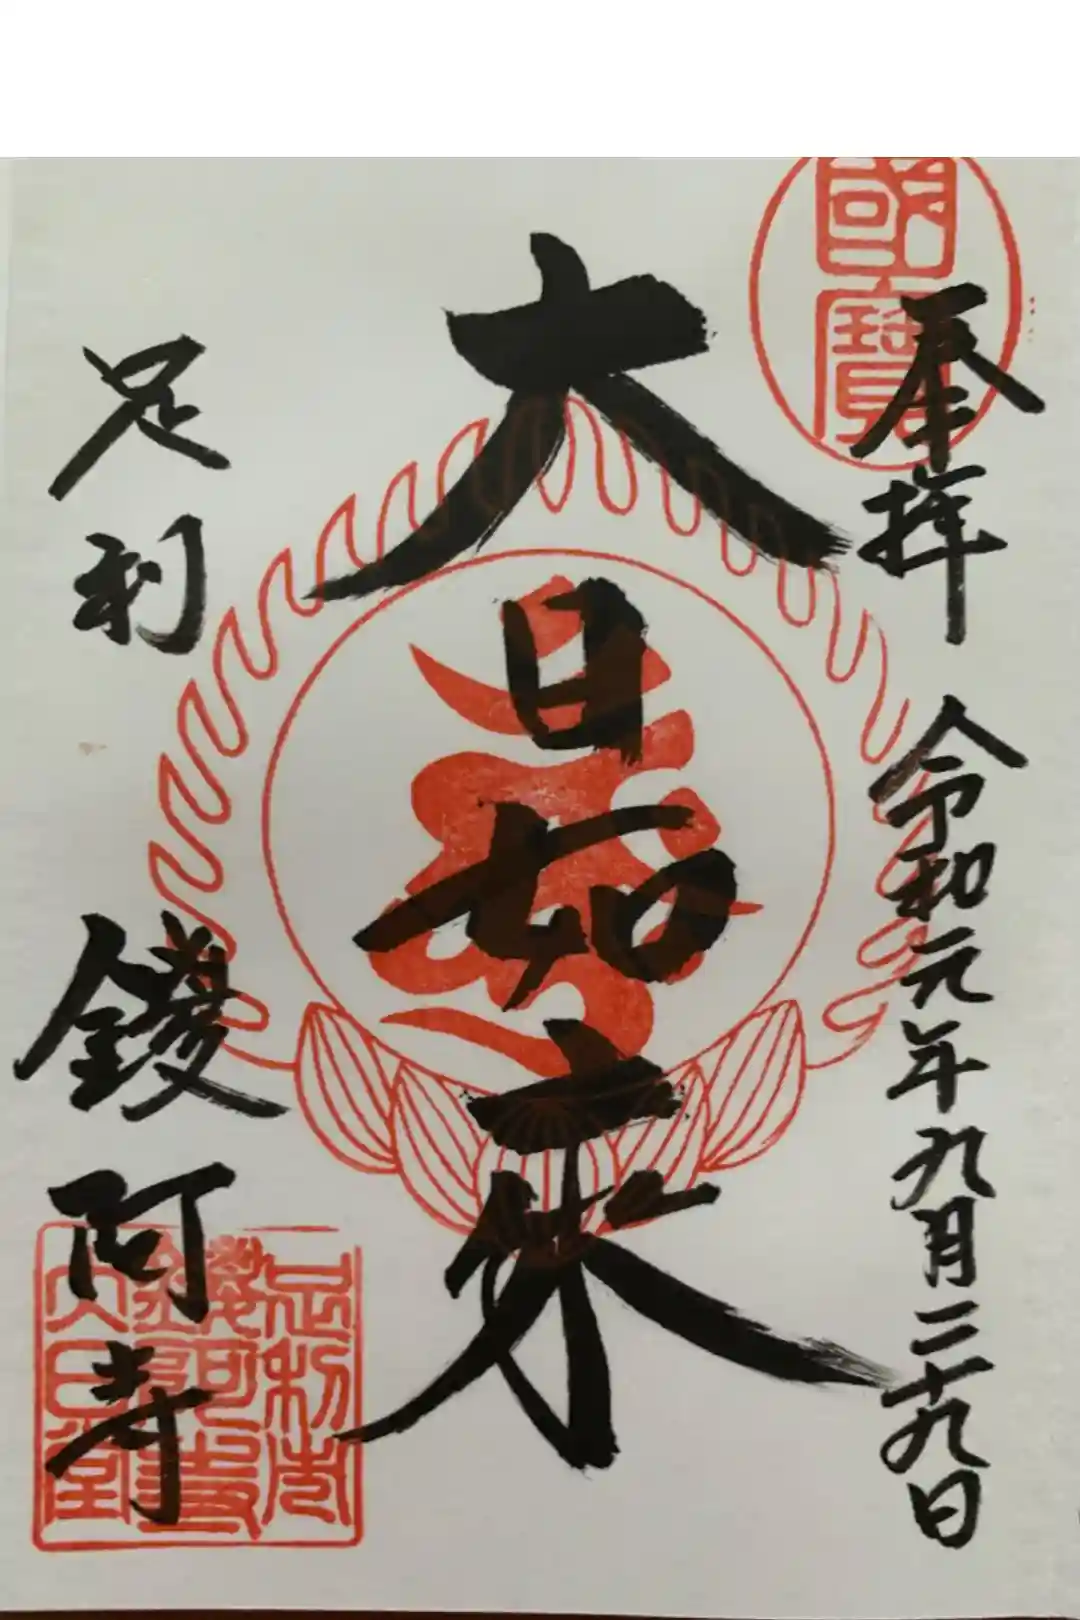 國寶
奉拝 令和元年九月二十九日
大日如来
足利 鑁阿寺
足利市
鑁阿寺
大日堂